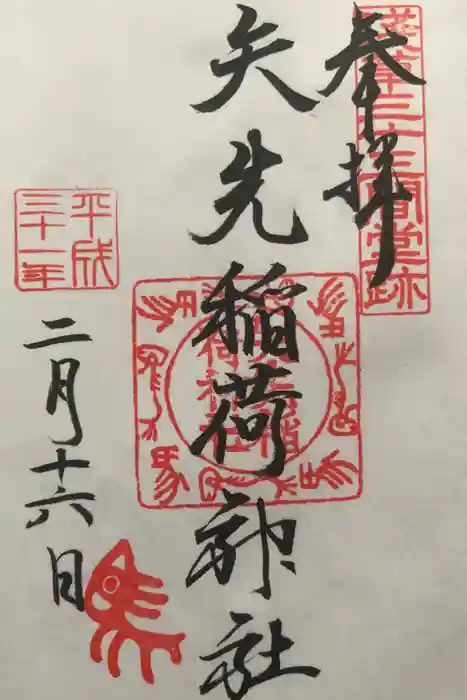 浅草三十三間堂跡
奉拝
矢先稲荷神社
平成
三十一年
二月十六日